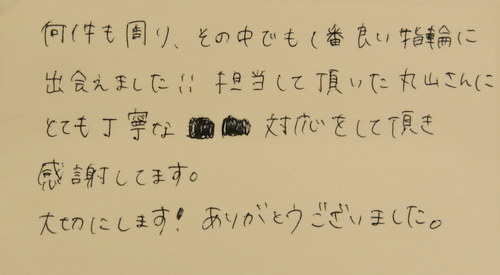 何件も周り、その中でも1番良い指輪に
出会えました!! 担当して頂いた丸山さんに
とても丁寧な 対応をして頂き
感謝してます。
大切にします! ありがとうございました。